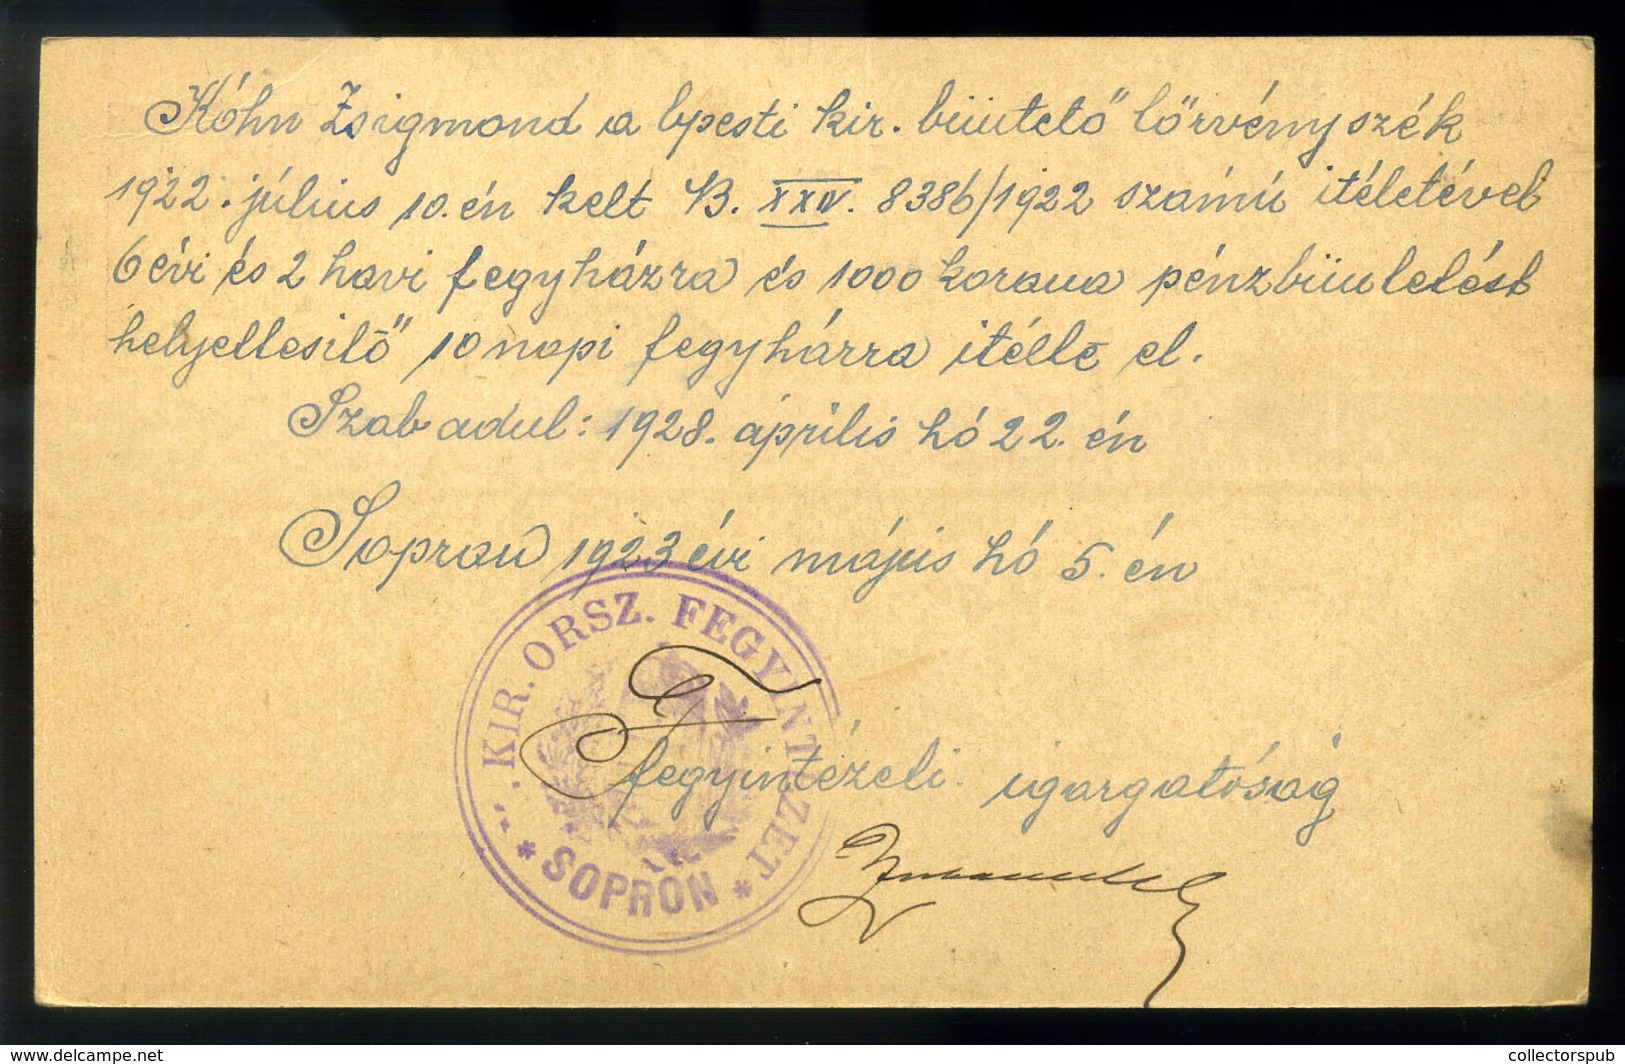 Kóhn Zsigmond a bpesti kir. büntető törvényszék
1922. július 10.én kelt B. XXIV. 8386/1922 számú itéletével
6 évi és 2 havi fegyházra és 1000 korana pénzbüntetést
helyettesitő 10 napi fegyházra itélte el.
Szabadul: 1928. április hó 22. én
Sopron 1923 évi május hó 5. én
KIR. ORSZ. FEGYINTÉZET
* SOPRON *
fegyintézeti igazgatóság
hu.delcampe.net
collectorspub